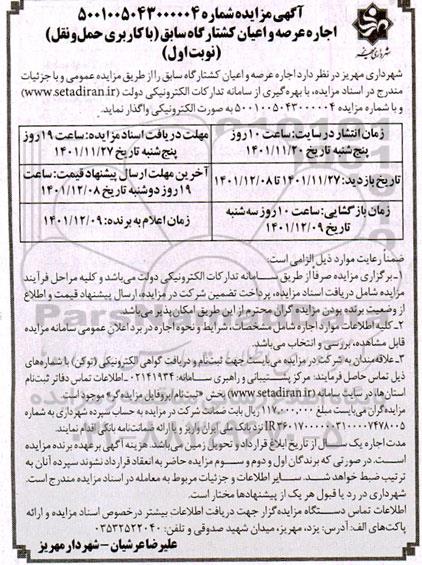 آگهی مزایده شماره ۵۰۰۱۰۰۵۰۴۳۰۰۰۰۰۴
اجاره عرصه و اعیان کشتارگاه سابق (با کاربری حمل و نقل)
(نوبت اول)
شهرداری مهریز
شهرداری مهریز در نظر دارد اجاره عرصه و اعیان کشتارگاه سابق را از طریق مزایده عمومی و با جزئیات
مندرج در اسناد مزایده، با بهره‌گیری از سامانه تدارکات الکترونیکی دولت (www.setadiran.ir)
و با شماره مزایده ۵۰۰۱۰۰۵۰۴۳۰۰۰۰۰۴ به صورت الکترونیکی واگذار نماید.
زمان انتشار در سایت: ساعت ۱۰ روز
پنج‌شنبه تاریخ ۱۴۰۱/۱۱/۲۰
مهلت دریافت اسناد مزایده: ساعت ۱۹ روز
پنج‌شنبه تاریخ ۱۴۰۱/۱۱/۲۷
تاریخ بازدید: ۱۴۰۱/۱۱/۲۷ تا ۱۴۰۱/۱۲/۰۸
آخرین مهلت ارسال پیشنهاد قیمت: ساعت
۱۹ روز دوشنبه تاریخ ۱۴۰۱/۱۲/۰۸
زمان بازگشایی: ساعت ۱۰ روز سه‌شنبه
تاریخ ۱۴۰۱/۱۲/۰۹
زمان اعلام به برنده: ۱۴۰۱/۱۲/۰۹
ضمناً رعایت موارد ذیل الزامی است:
۱-برگزاری مزایده صرفاً از طریق سامانه تدارکات الکترونیکی دولت می‌باشد و کلیه مراحل فرآیند
مزایده شامل دریافت اسناد مزایده، پرداخت تضمین شرکت در مزایده، ارسال پیشنهاد قیمت و اطلاع
از وضعیت برنده بودن مزایده گران محترم از این طریق امکان پذیر می‌باشد.
۲-کلیه اطلاعات موارد اجاره شامل مشخصات، شرایط و نحوه اجاره در برد اعلان عمومی سامانه مزایده
قابل مشاهده، بررسی و انتخاب می‌باشد.
۳-علاقه‌مندان به شرکت در مزایده می‌بایست جهت ثبت‌نام و دریافت گواهی الکترونیکی (توکن) با شماره‌های
ذیل تماس حاصل فرمایند: مرکز پشتیبانی و راهبری سامانه: ۰۲۱۴۱۹۳۴-اطلاعات تماس دفاتر ثبت‌نام
استان ها، در سایت سامانه (www.setadiran.ir) بخش «ثبت‌نام/پروفایل مزایده‌گر» موجود است.
مزایده‌گران می‌بایست مبلغ ۱۱۷,۰۰۰,۰۰۰ ریال بابت ضمانت شرکت در مزایده به حساب سپرده شهرداری به شماره
نزد بانک ملی ایران واریز و یا ارائه ضمانت‌نامه بانکی اقدام نمایند.
مدت اجاره یک سال از تاریخ ابلاغ قرارداد و تحویل زمین می‌باشد. هزینه آگهی برعهده برنده مزایده
است. در صورتی که برندگان اول و دوم و سوم مزایده حاضر به انعقاد قرارداد نشوند سپرده آنان به
ترتیب ضبط خواهد شد. سایر اطلاعات و جزئیات مربوط به معامله در اسناد مزایده مندرج است.
شهرداری در رد یا قبول هر یک از پیشنهادها مختار است.
اطلاعات تماس دستگاه مزایده‌گزار جهت دریافت اطلاعات بیشتر درخصوص اسناد مزایده و ارائه
پاکت‌های الف: آدرس: یزد، مهریز، میدان شهید صدوقی و تلفن: ۰۳۵۳۲۵۲۲۰۴۰
علیرضا عرشیان - شهردار مهریز